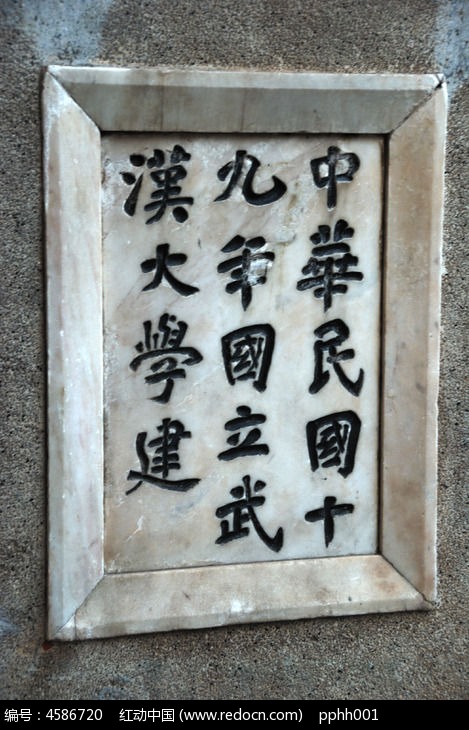 中華民國十
九年國立武
漢大學建
编号：4586720 红动中国 (www.redocn.com) pphh001